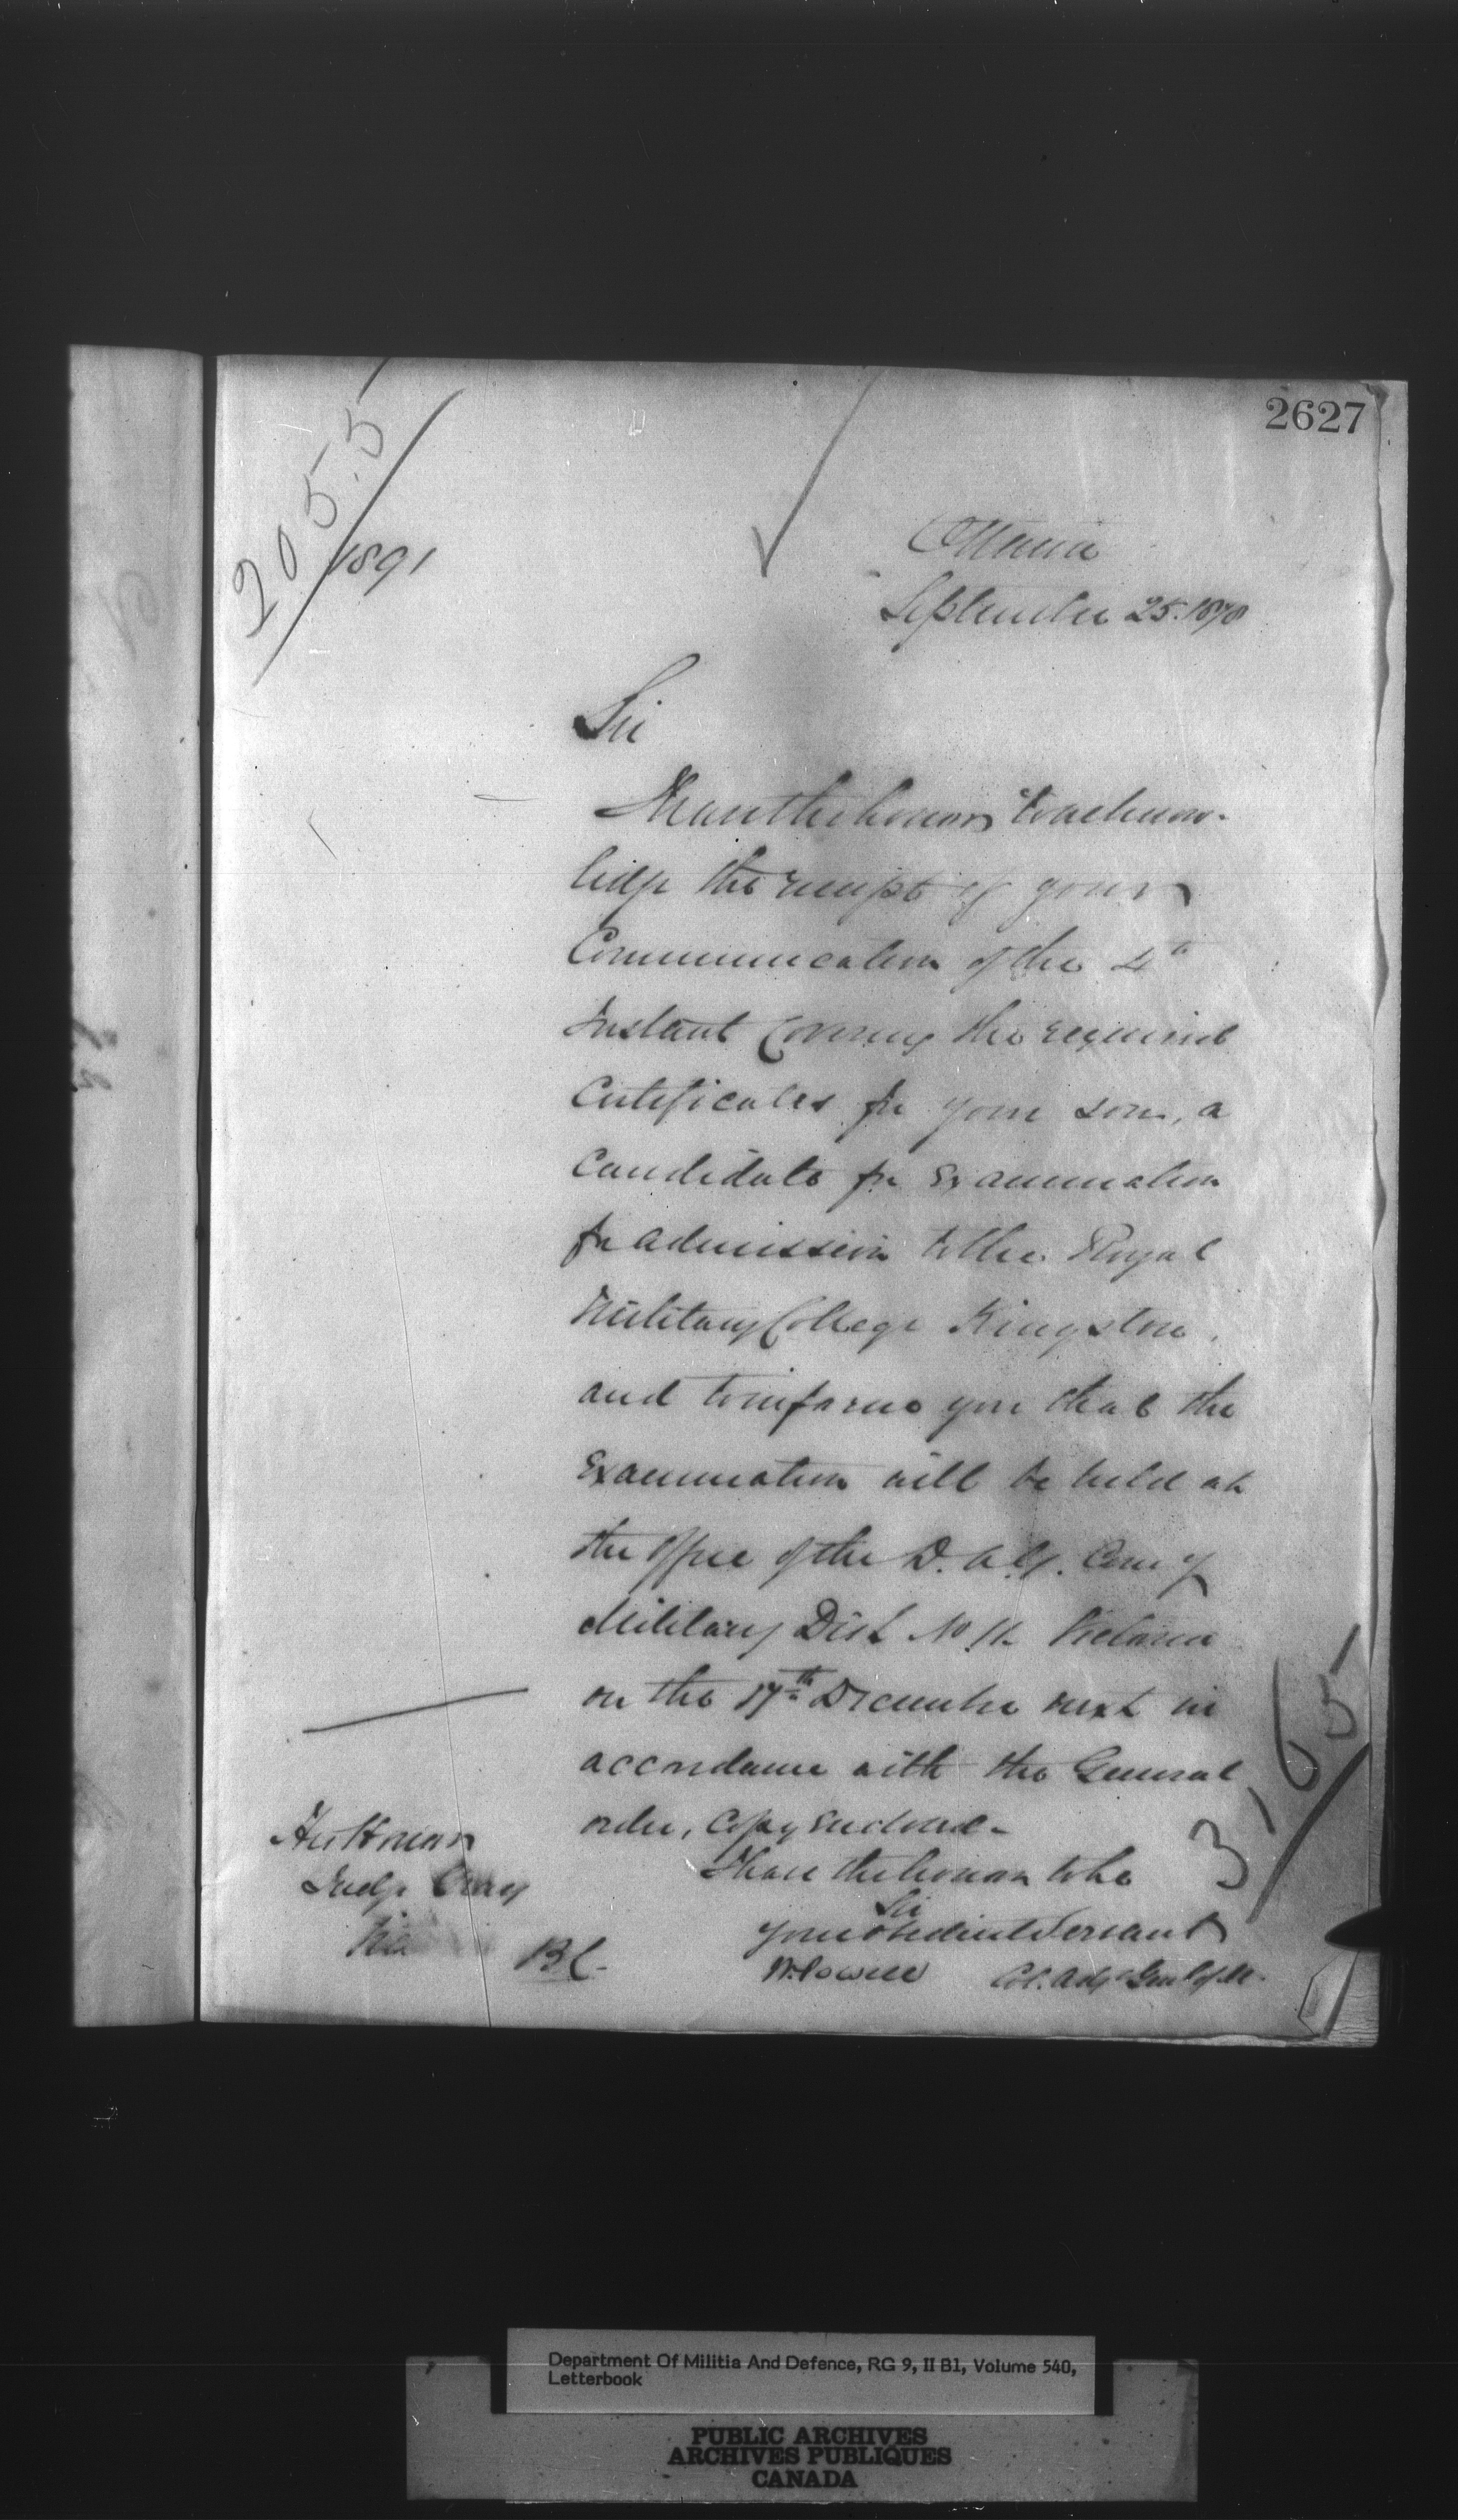 2627
2055
1891
Ottawa
September 25. 1878
Sir
I have the honor to acknow-
ledge the receipt of your
Communication of the 4th
Instant Covering the required
Certificates for your son, a
Candidate for Examination
for admission to the Royal
Military College Kingston,
and to inform you that the
Examination will be held at
the Office of the D. A. G. Com g
Military Dist No 11. Victoria
on the 17th December next in
accordance with the General
order, Copy enclosed.
I have the honor to be
Sir
your obedient Servant
W. Powell Col. Adjt Genl of M.
3165
His Honor
Judge Gray
B C.
Department Of Militia And Defence, RG 9, II B1, Volume 540,
Letterbook
PUBLIC ARCHIVES
ARCHIVES PUBLIQUES
CANADA